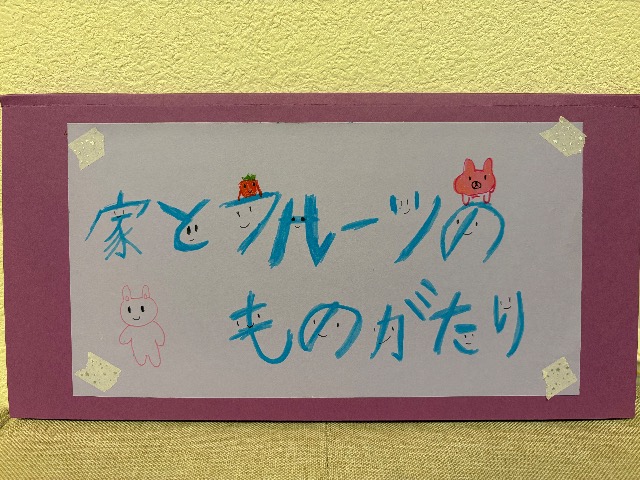 家とフルーツの
ものがたり